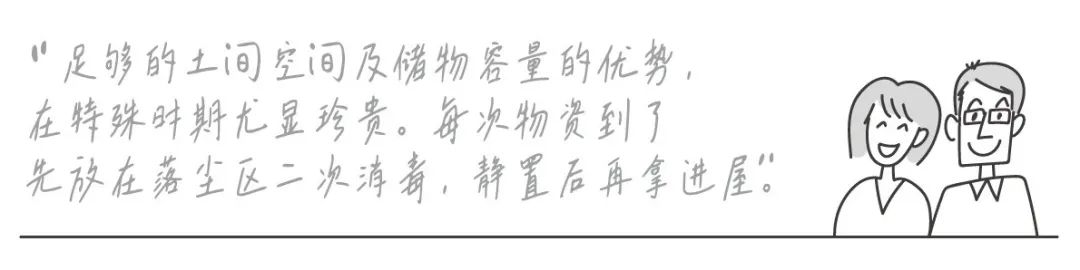 "足够的土间空间及储物容量的优势，
在特殊时期尤显珍贵。每次物资到了
先放在落尘区二次消毒，静置后再拿进屋"。